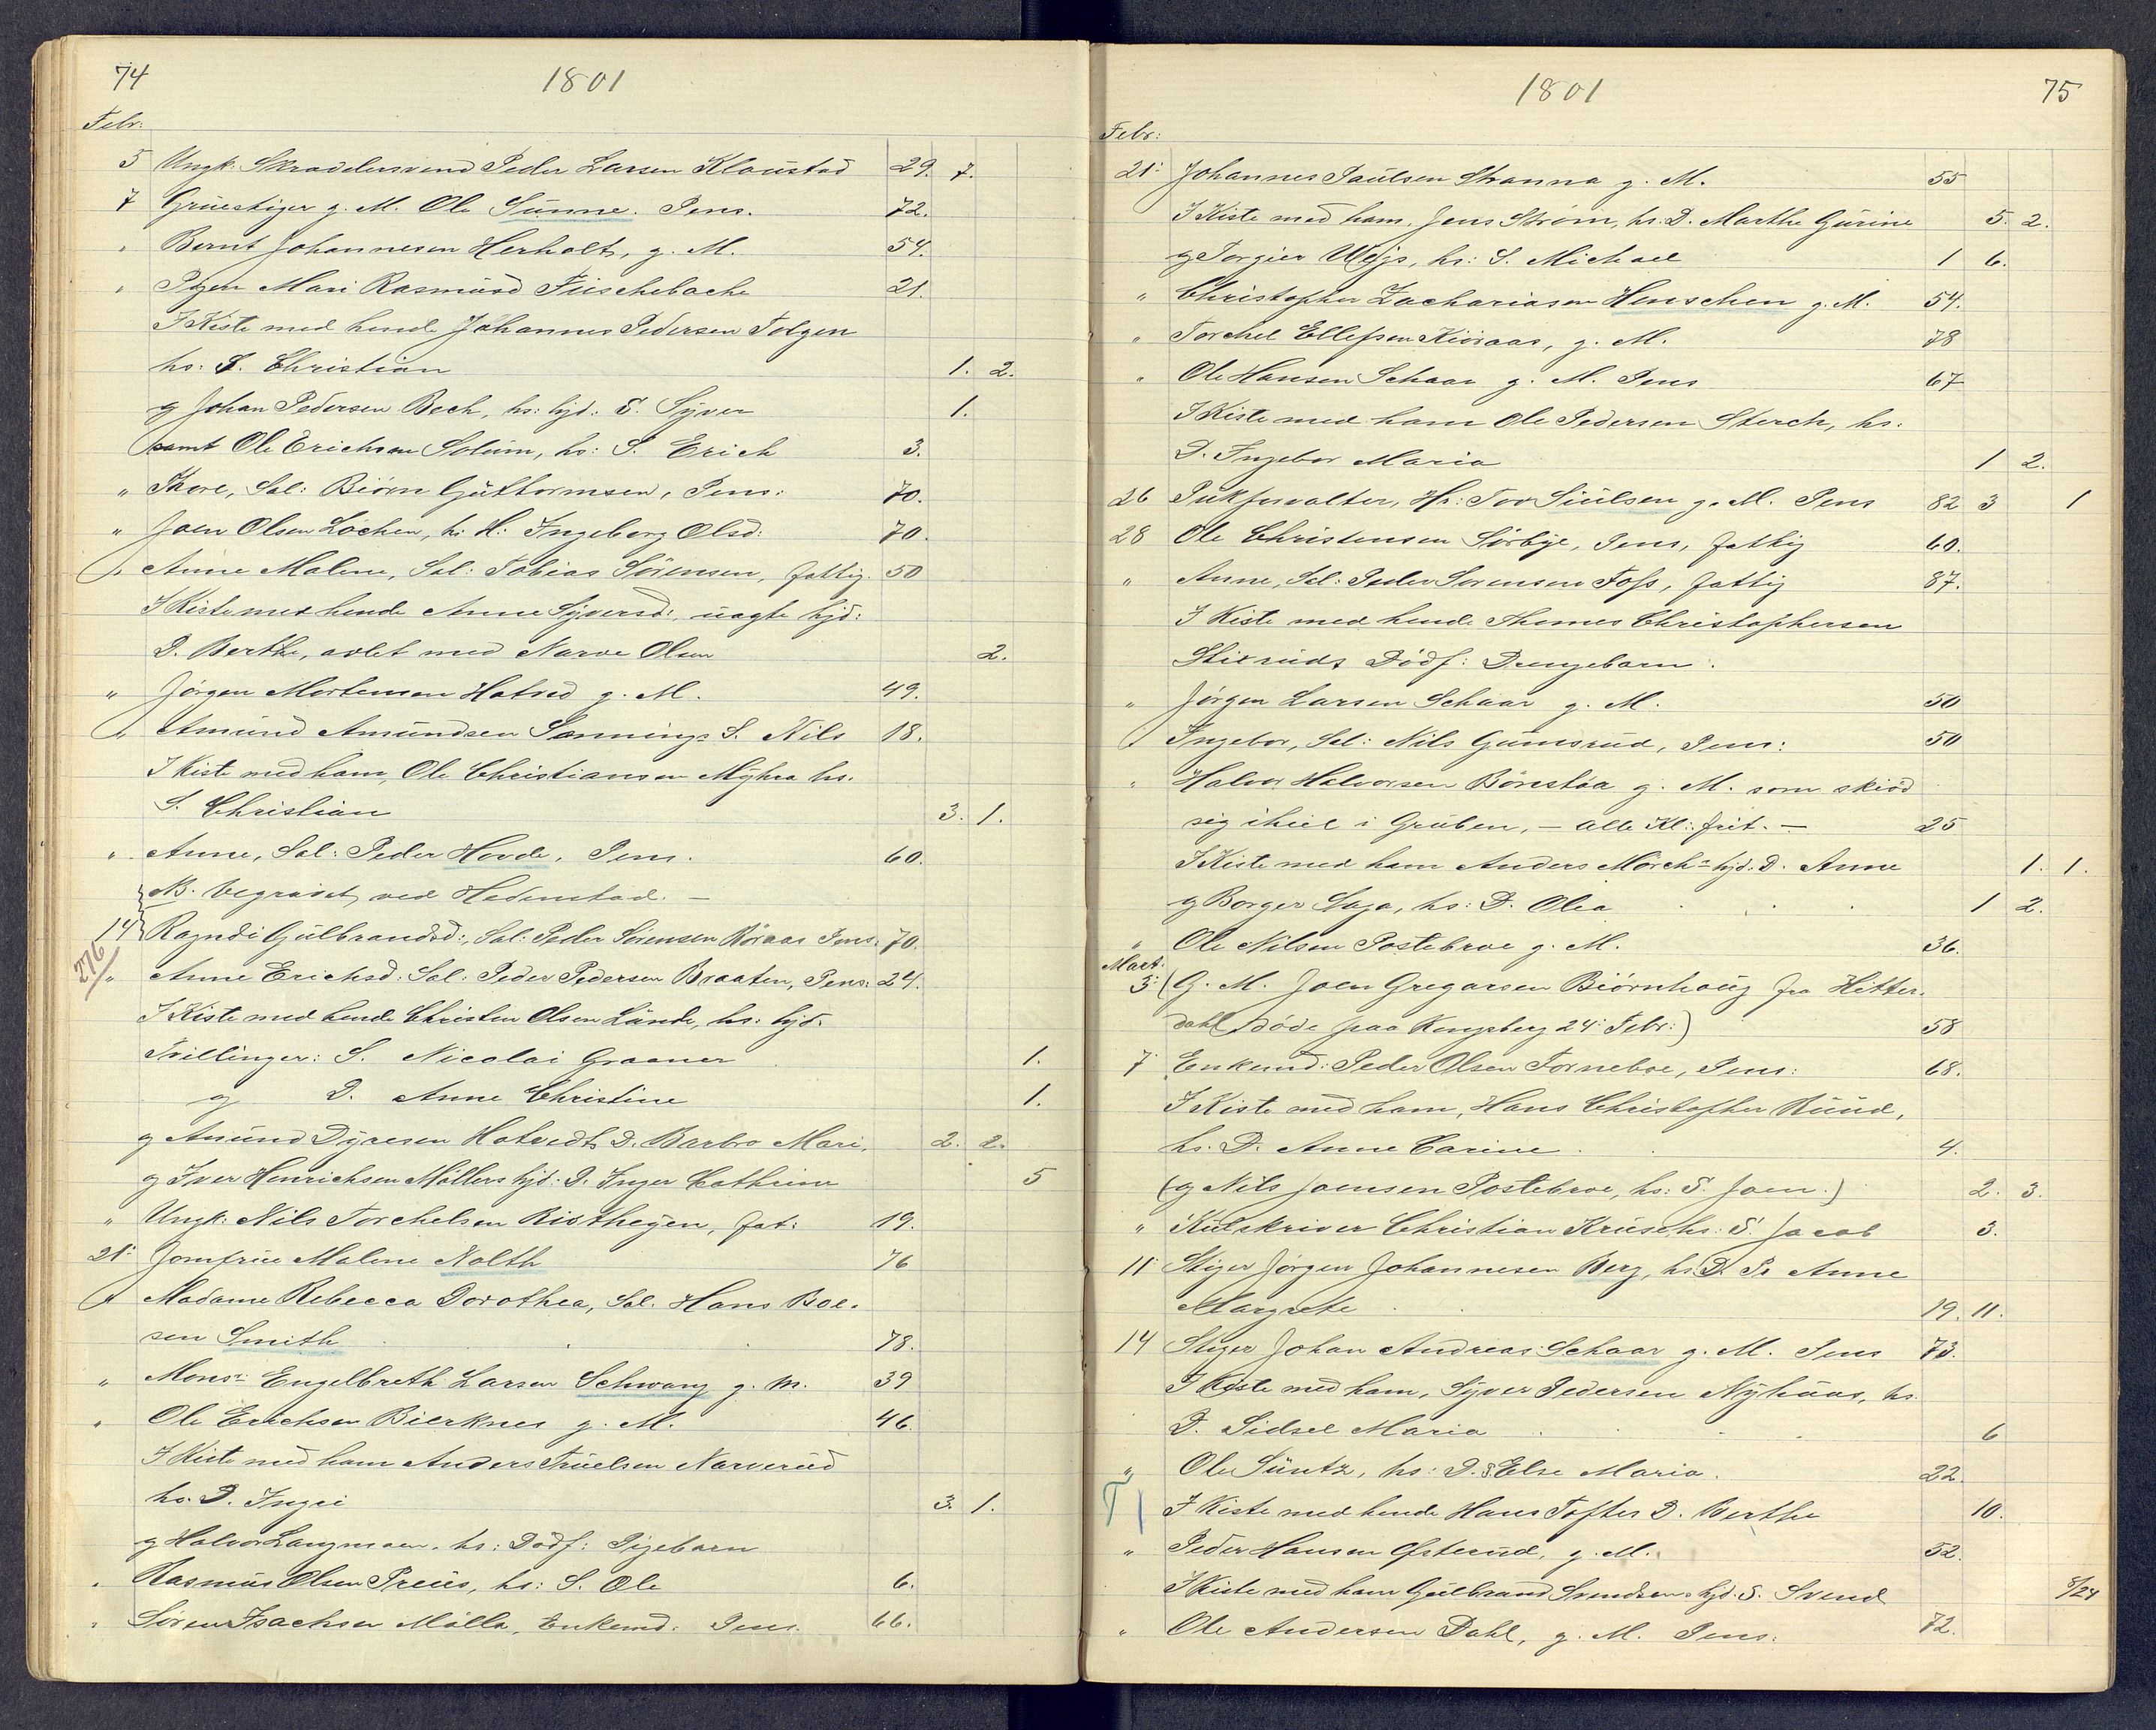 74
1801
Febr:
5 Ungk: Skrædersvend Peder Larsen Kloustad 29. 7.
7 Gruestiger g. M. Ole Sunne. Pens. 72.
" Bernt Johannesen Herholt, g. M. 54.
" Pigen Mari Rasmusd Fiischebache 21.
I Kiste med hende Johannes Pedersen Tolgen
hs: S. Christian 1. 2.
g Johan Pedersen Bech, hs: hjd: S. Syver 1.
samt Ole Erichsen Solum, hs: S. Erich 3.
" Thore, Sal: Biørn Guttormsen, Pens: 70.
" Joen Olsen Løchen, hs H: Ingeborg Olsd: 70.
" Anne Malene, Sal: Tobias Sörensen, fattig. 50
I Kiste med hende Anne Syversd:, uægte hjd:
D. Berthe, avlet med Narve Olsen 2.
" Jørgen Mortensen Hotved g. M. 49.
" Amund Amundsen Sønnings S. Nils 18.
I Kiste med ham, Ole Christiansen Myhra hs.
S. Christian 3. 1.
" Anne, Sal: Peder Hovde, Pens. 60.
NB. begravet ved Hedenstad. –
14 Ragndi Gulbrandsd:, Sal: Peder Sørensen Röraas Pens: 70.
276
" Anne Erichsd: Sal: Peder Pedersen Braaten, Pens: 24.
I Kiste med hende Christen Olsen Lunde, hs: hjd:
Tvillinger: S. Nicolai Graaner 1.
g D. Anne Christine 1.
g Amund Dyresen Hotvedts D. Barbro Mari. 2. 2.
g Iver Henrichsen Möllers hjd: D. Inger Cathrine 5
" Ungk: Nils Torchelsen Ristheyen, fat: 19.
21: Jomfrue Malene Nolth 76
" Madame Rebecca Dorothea, Sal. Hans Boe-
sen Smith 78.
" Monsr: Engelbreth Larsen Schwang g. M. 39
" Ole Erichsen Bierknes g. M. 46.
I Kiste med ham Anders Truelsen Narverud
hs. D. Inger 3. 1.
g Halvor Langmoen, hs: Dödf: Pigebarn
" Rasmus Olsen Preus, hs: S. Ole 6.
" Sören Isachsen Mölla, Enkemd: Pens. 66.
1801
75
Febr:
21: Johannes Paulsen Stranna g. M. 55
I Kiste med ham, Jens Strøm, hs: D. Marthe Gurine 5. 2.
g Torgier Wejs, hs: S. Michael 1 6.
" Christopher Zachariasen Henschen g. M. 54.
" Torchel Ellefsen Kiöraas, g. M. 78
" Ole Hansen Schaar g. M. Pens 67
I Kiste med ham Ole Pedersen Sterch, hs.
D. Ingebor Maria 1 2.
26 Pukforvalter, Hr: Tor Siulsen g. M. Pens 82 3 1
28 Ole Christensen Sørbye, Pens, fattig 60.
" Anne, Sal: Peder Sørensen Foss, fattig 87.
I Kiste med hende Thomes Christophersen
Stixruds Dödf: Drengebarn.
" Jörgen Larsen Schaar g. M. 50
" Ingebor, Sal: Nils Gumsrud, Pens: 50
" Halvor Halvorsen Börestöa g. M. som skiød
sig ihiel i Gruben, – alle Kl: frit. – 25
I Kiste med ham Anders Mørchs hjd: D. Anne 1. 1.
g Borger Saga, hs: D. Olea 1 2.
" Ole Nilsen Postebroe g. M. 36.
Mart:
3: (G. M. Joen Gregarsen Biörnhaug fra Hitter-
dahl døde paa Kongsberg 24: Febr:) 58
7 Enkemd: Peder Olsen Torneboe, Pens: 68.
I Kiste med ham, Hans Christopher Ruud,
hs. D. Anne Carine 4.
(g Nils Joensen Postebroe, hs: S. Joen.) 2. 3.
" Kulskriver Christian Kruse, hs: S. Jacob 3.
11 Stiger Jörgen Johannesen Berg, hs. D. Pe Anne
Margrete 19. 11.
14 Stiger Johan Andreas Schaar g. M. Pens 73.
I Kiste med ham, Syver Pedersen Nyhuus, hs
D. Sidsel Maria 6
" Ole Suntz, hs: D. Else Maria. 22.
T I Kiste med hende Hans Tofter D. Berthe 10.
" Peder Hansen Ofsterud, g. M. 52.
I Kiste med ham Gulbrand Svendsens hjd: S. Svend 8/24
" Ole Andersen Dahl, g. M. Pens: 72.